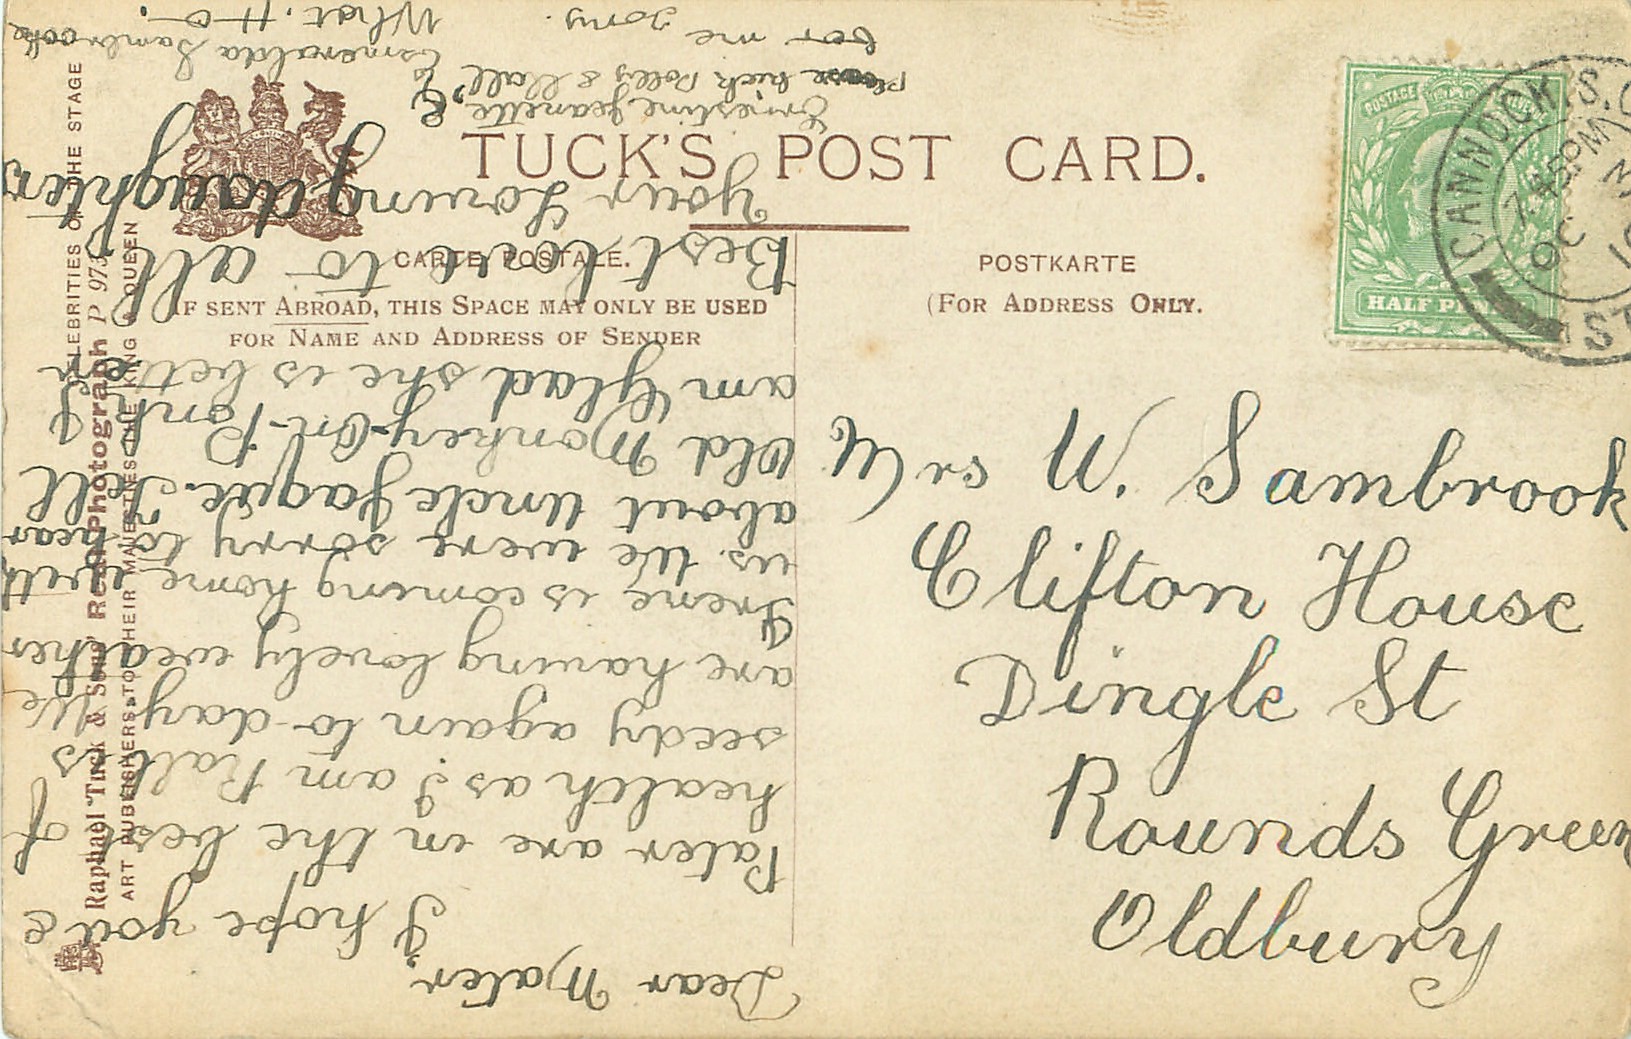 TUCK'S POST CARD.
CARTE POSTALE.
POSTKARTE
IF SENT ABROAD, THIS SPACE MAY ONLY BE USED
FOR NAME AND ADDRESS OF SENDER
(FOR ADDRESS ONLY.
POSTAGE
HALF
CANNOCK S.
7.45PM
OC
Mrs W. Sambrook
Clifton House
Dingle St
Rounds Green
Oldbury
CELEBRITIES OF THE STAGE
Raphael Tuck & Sons' Real Photograph P 973
ART PUBLISHERS TO THEIR MAJESTIES THE KING & QUEEN
Dear Mater,
I hope you &
Pater are in the best of
health as I am Hall is
seedy again to-day We
are having lovely weather
Irene is coming home with
us. We were sorry to hear
about Uncle Jaque. Tell
Old Monkey-On-Ponk I
am Glad she is better
Best love to all
Your Loving daughters
Ernestine Jeanette &
Esmeralda Sambrooke
What. Ho.
Please kick Polly & Hall
for me
Tony